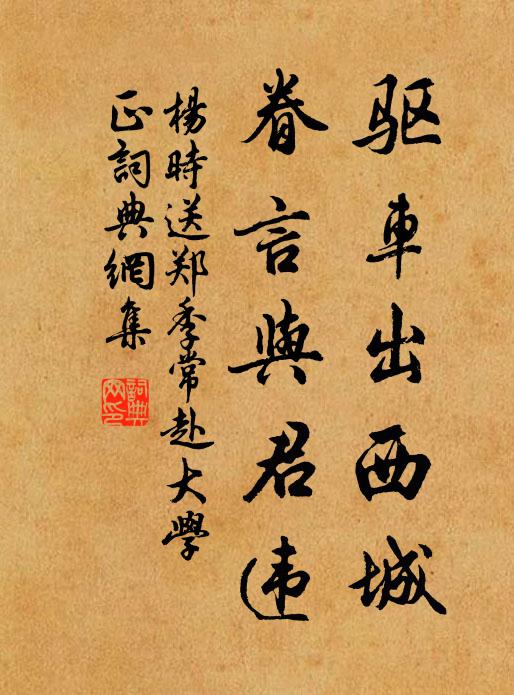 驱車出西城
眷言與君违
楊時送郑季常赴大學
正詞典網集
詞典
网印